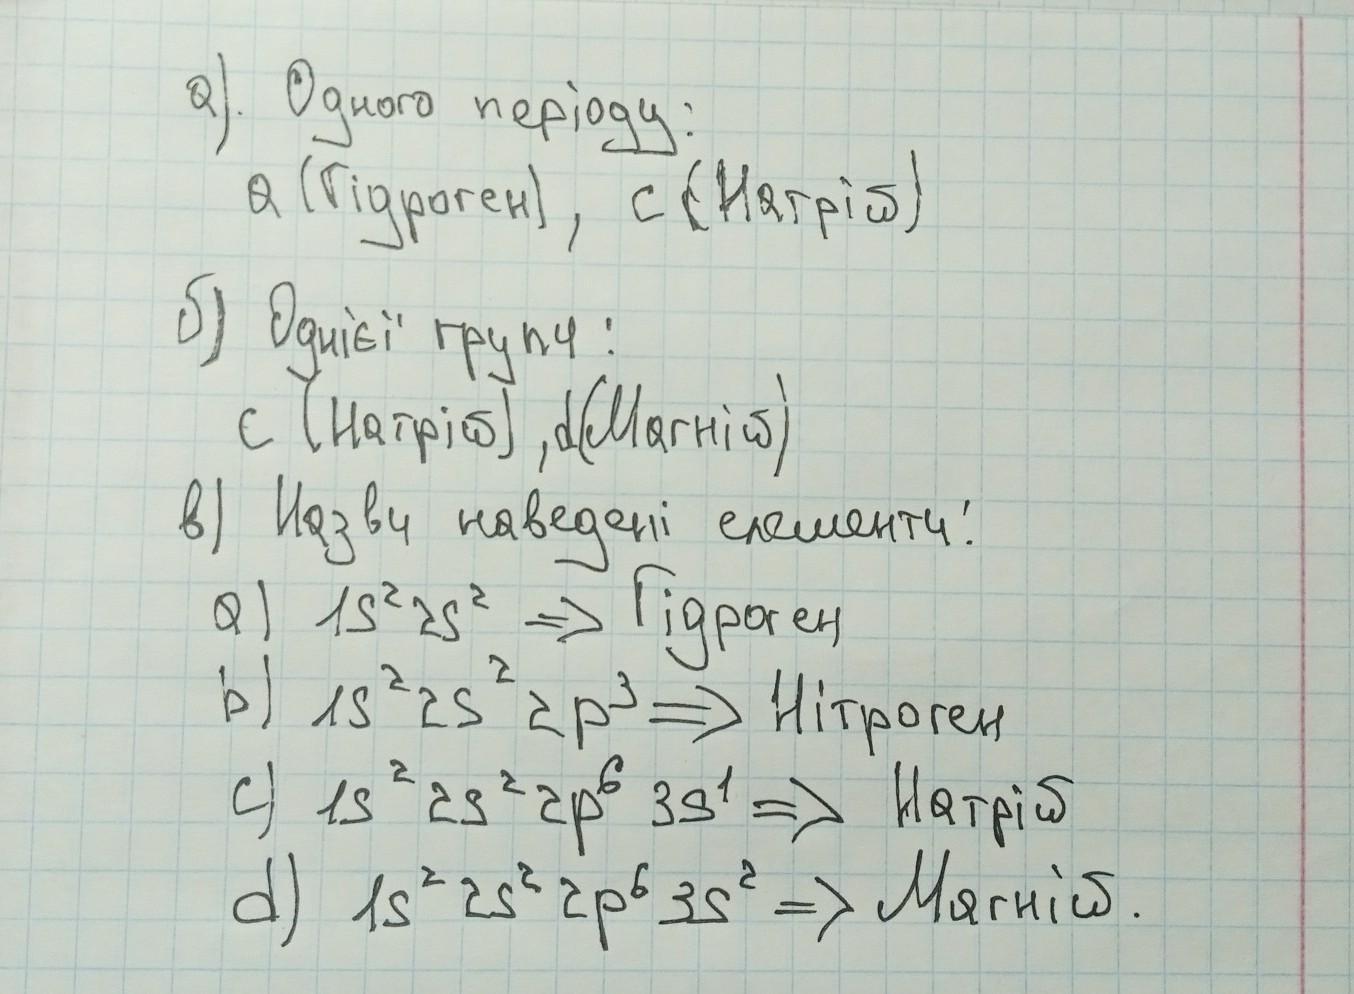 а). Одного періоду:
а (Гідроген), с (Натрій)
б) Однієї групи:
с (Натрій), d(Магній)
в) Назви наведені елементи:
а) 1s² 2s² => Гідроген
b) 1s² 2s² 2p³ => Нітроген
c) 1s² 2s² 2p⁶ 3s¹ => Натрій
d) 1s² 2s² 2p⁶ 3s² => Магній.